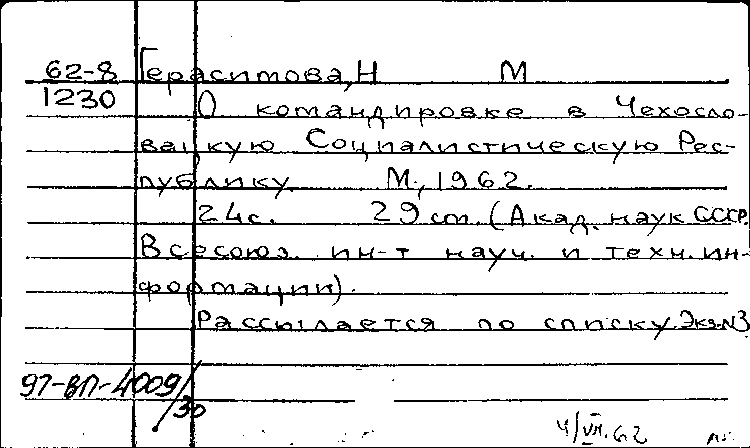 62-8 Герасимова, Н М
1230 О командировке в Чехосло-
вацкую Социалистическую Рес-
публику. М., 1962.
24 с. 29 см. (Акад. наук СССР.
Всесоюз. ин-т науч. и техн. ин-
формации).
Рассылается по списку. Экз. №3
97-ВП-4009/
/30
4/VII.62